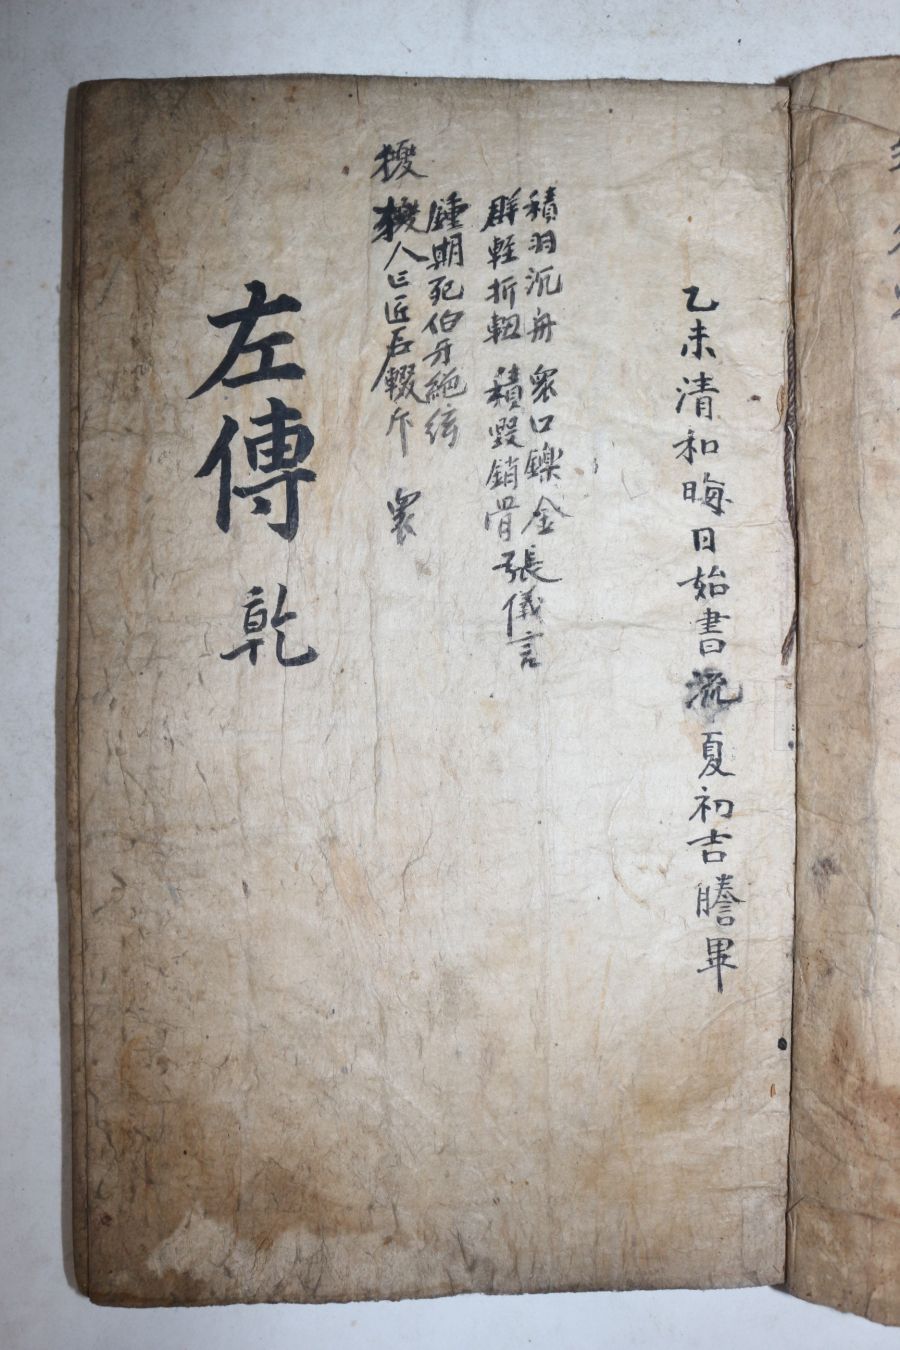 乙未清和晦日始書流夏初吉謄畢
積羽沉舟 衆口鑠金 張儀言
群輕折軸 積毀銷骨
鍾期死伯牙絶絃
獶
獶人亡匠石輟斤 衆
左傳 乾